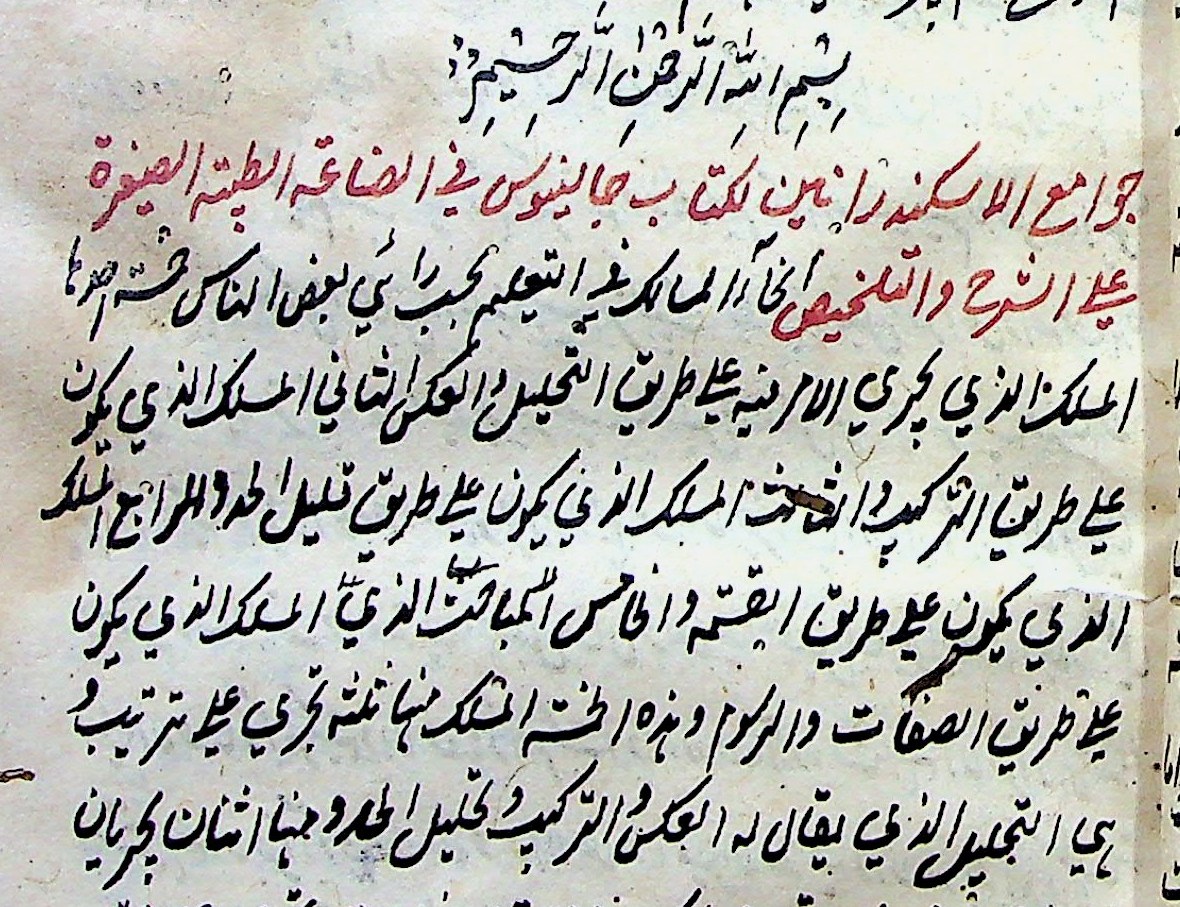 بِسْمِ اللّٰهِ الرَّحْمٰنِ الرَّحِيمِ
جوامع الاسكندرانيين لكتاب جالينوس في الصناعة الطبية الصغيرة
على الشرح والتلخيص انحاء المسالك في التعليم بحسب رائي بعض الناس خمسة احدها
المسلك الذي يجري الامر فيه على طريق التحليل والعكس الثاني المسلك الذي يكون
على طريق التركيب والثالث المسلك الذي يكون على طريق تحليل الحد والرابع المسلك
الذي يكون على طريق القسمة والخامس الذي المسلك الذي يكون
على طريق الصفات والرسوم وهذه الخمسة المسلك منها ثلثة تجري على ترتيب و
هي التحليل الذي يقال له العكس والتركيب وتحليل الحد ومنها اثنان يجريان